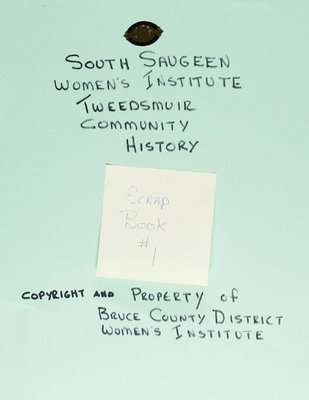 South Saugeen
Women's Institute
Tweedsmuir
Community
History
Scrap
Book
#1
Copyright and Property of
Bruce County District
Women's Institute